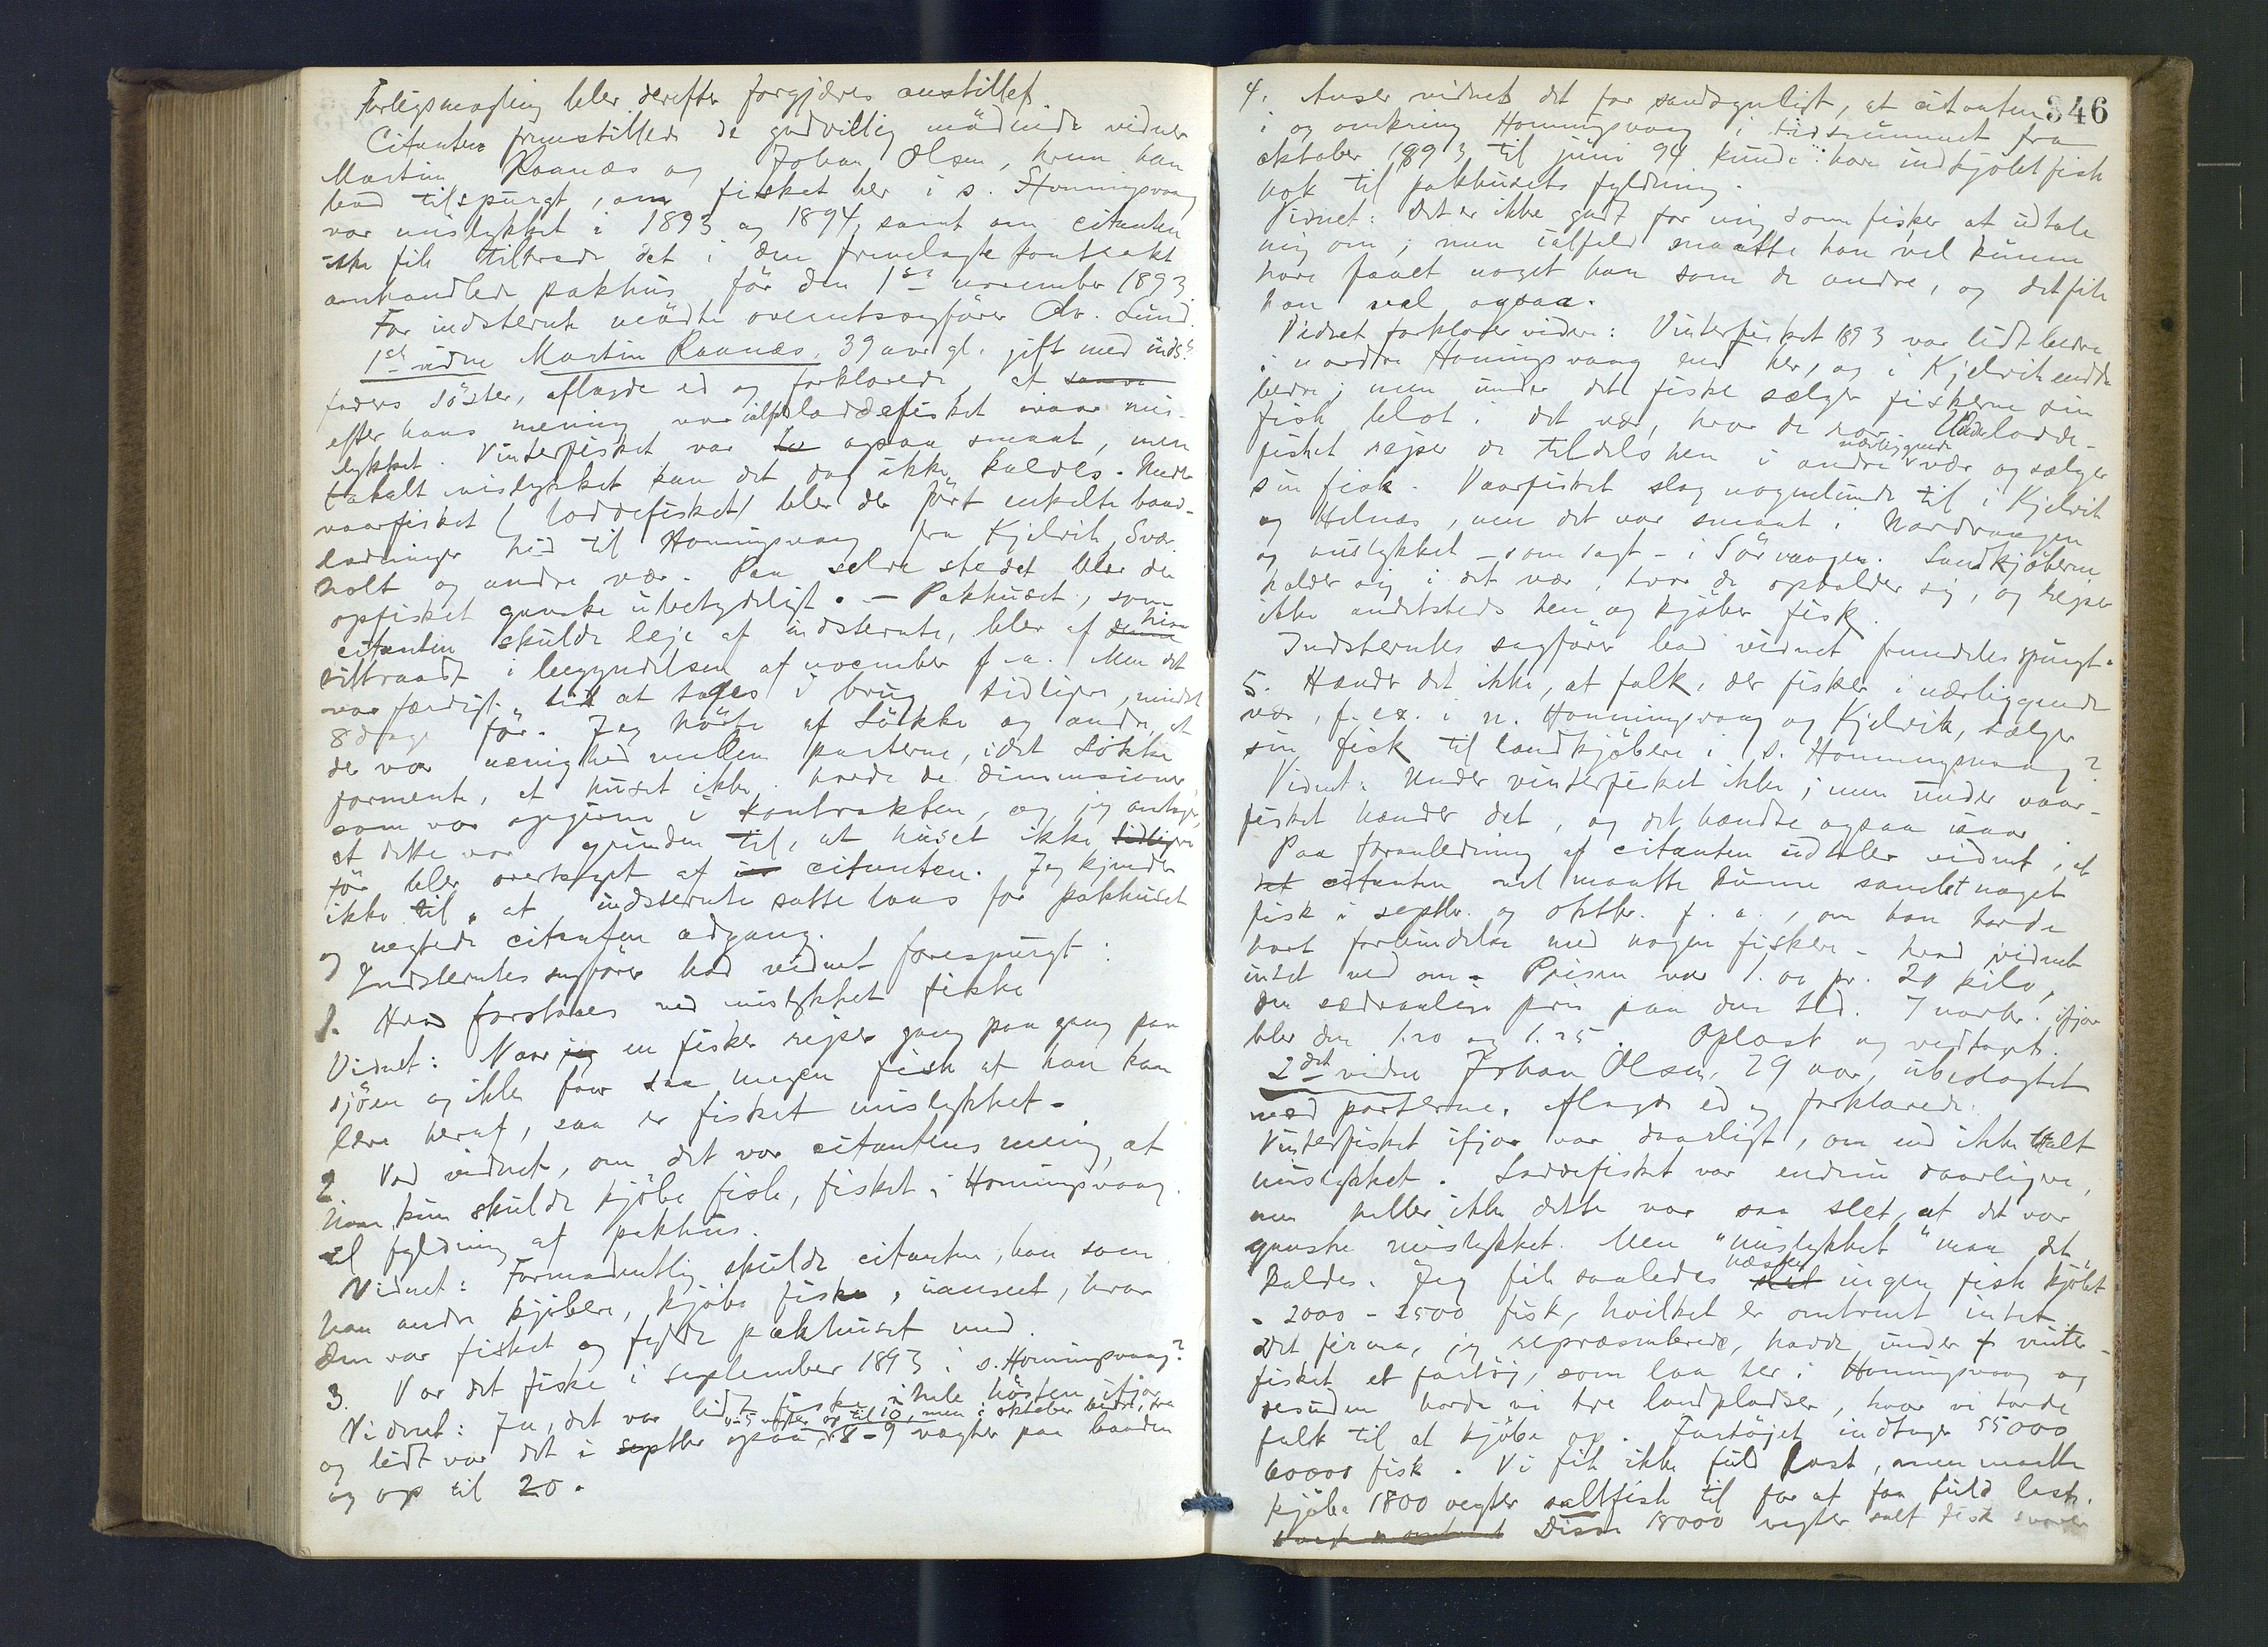 Forligsmægling blev derefter forgjæves anstillet.
Citanten fremstillede de godvillig mødende vidner
Martin Raanæs og Johan Olsen, hvem han
bad tilspurgt, om fisket her i s. Honningsvaag
var mislykket i 1893 og 1894, samt om citanten
ikke fik tiltræde det i den fremlagte kontrakt
omhandlede pakhus før den 1ste november 1893.
For indstevnte mødte overretssagfører Chr. Lund.
1ste vidne Martin Raanæs, 39 aar gl. gift med indst.s
faders søster, aflagde ed og forklarede, at
efter hans mening var ialfald loddefisket iaar mis-
lykket. Vinterfisket var ogsaa smaat, men
totalt mislykket kan det dog ikke kaldes. Under
vaarfisket (loddefisket) blev der ført enkelte baad-
ladninger hid til Honningsvaag fra Kjelvik, Svær-
holt og andre vær. Paa selve stedet blev der
opfisket ganske ubetydeligt. – Pakhuset, som
citanten skulde leje af indstevnte, blev af ham
tiltraadt i begyndelsen af november f. a. Men det
var færdigt til at tages i brug tidligere, mindst
8 dage før. Jeg hørte af Løkke og andre, at
der var uenighed mellem parterne, idet Løkke
formente, at huset ikke havde de dimensioner
som var opgivne i kontrakten, og jeg antager,
at dette var grunden til, at huset ikke tidligere
før blev overtaget af citanten. Jeg kjender
ikke til, at indstevnte satte laas for pakhuset
og negtede citanten adgang.
Indstevntes sagfører bad vidnet forespurgt:
1. Hvad forstaaes ved mislykket fiske
Vidnet: Naar jeg en fisker rejser gang paa gang paa
sjøen og ikke faar saa megen fisk at han kan
leve heraf, saa er fisket mislykket.
2. Ved vidnet, om det var citantens mening, at
han kun skulde kjøbe fisk, fisket i Honningsvaag
til fyldning af pakhus.
Vidnet: Formodentlig skulde citanten, han som
han andre kjøbere, kjøbe fisk, uanseet, hvor
den var fisket og fylde pakhuset med.
3. Var det fiske i september 1893 i s. Honningsvaag?
Vidnet: Ja, det var lidt fiske i hele høsten ifjor
og lidt var det i septbr ogsaa, 4–5 vægter op til 10, men i oktober bedre, fra 8–9 vægter paa baaden
og op til 20.
346
4. Anser vidnet det for sandsynligt, at citanten
i og omkring Honningsvaag i tidsrummet fra
oktober 1893 til juni 94 kunde have indkjøbt fisk
nok til pakhusets fyldning.
Vidnet: Det er ikke godt for mig som fisker at udtale
mig om; men ialfald maatte han vel kunne
have faaet noget han som de andre, og det fik
han vel ogsaa.
Vidnet forklarer videre: Vinterfisket 1893 var lidt bedre
i nordre Honningsvaag end her, og i Kjelvik endda
bedre; men under det fiske sælger fiskerne sin
fisk blot i det vær, hvor de ror. Under lodde-
fisket rejser de tildels hen i andre nærliggende vær og sælger
sin fisk. Vaarfisket slog nogenlunde til i Kjelvik
og Helnæs, men det var smaat i Nordvaagen
og mislykket – som sagt – i Sørvaagen. Landkjøberne
holder sig i det vær, hvor de opholder sig, og rejser
ikke andetsteds hen og kjøber fisk.
Indstevntes sagfører bad vidnet fremdeles spurgt:
5. Hænder det ikke, at folk, der fisker i nærliggende
vær, f. ex. i n. Honningsvaag og Kjelvik, sælger
sin fisk til landkjøbere i s. Honningsvaag?
Vidnet: Under vinterfisket ikke; men under vaar-
fisket hænder det, og det hændte ogsaa iaar.
Paa foranledning af citanten udtaler vidnet, at
citanten vel maatte kunne samlet noget
fisk i septbr. og oktbr. f. a., om han havde
havt forbindelse med nogen fiskere – hvad vidnet
intet ved om. Prisen var 1.00 pr. 20 kilo,
den sædvanlige pris paa den tid. I novbr. ifjor
blev den 1.20 og 1.25. Oplæst og vedtaget.
2det vidne Johan Olsen, 29 aar, ubeslægtet
med parterne, aflagde ed og forklarede:
Vinterfisket ifjor var daarligt, om end ikke totalt
mislykket. Loddefisket var endnu daarligere,
men heller ikke dette var saa slet, at det var
ganske mislykket. Men "mislykket" maa det
kaldes. Jeg fik saaledes næsten ingen fisk kjøbt
– 2000 – 2500 fisk, hvilket er omtrent intet.
Det firma, jeg repræsenterede, havde under vinter-
fisket et fartøj, som laa her i Honningsvaag og
desuden havde vi tre landpladser, hvor vi havde
folk til at kjøbe op. Fartøjet indtager 55000
60000 fisk. Vi fik ikke fuld last, men maatte
kjøbe 1800 vegter saltfisk til for at faa fuld last.
Disse 18000 vegter salt fisk svarer